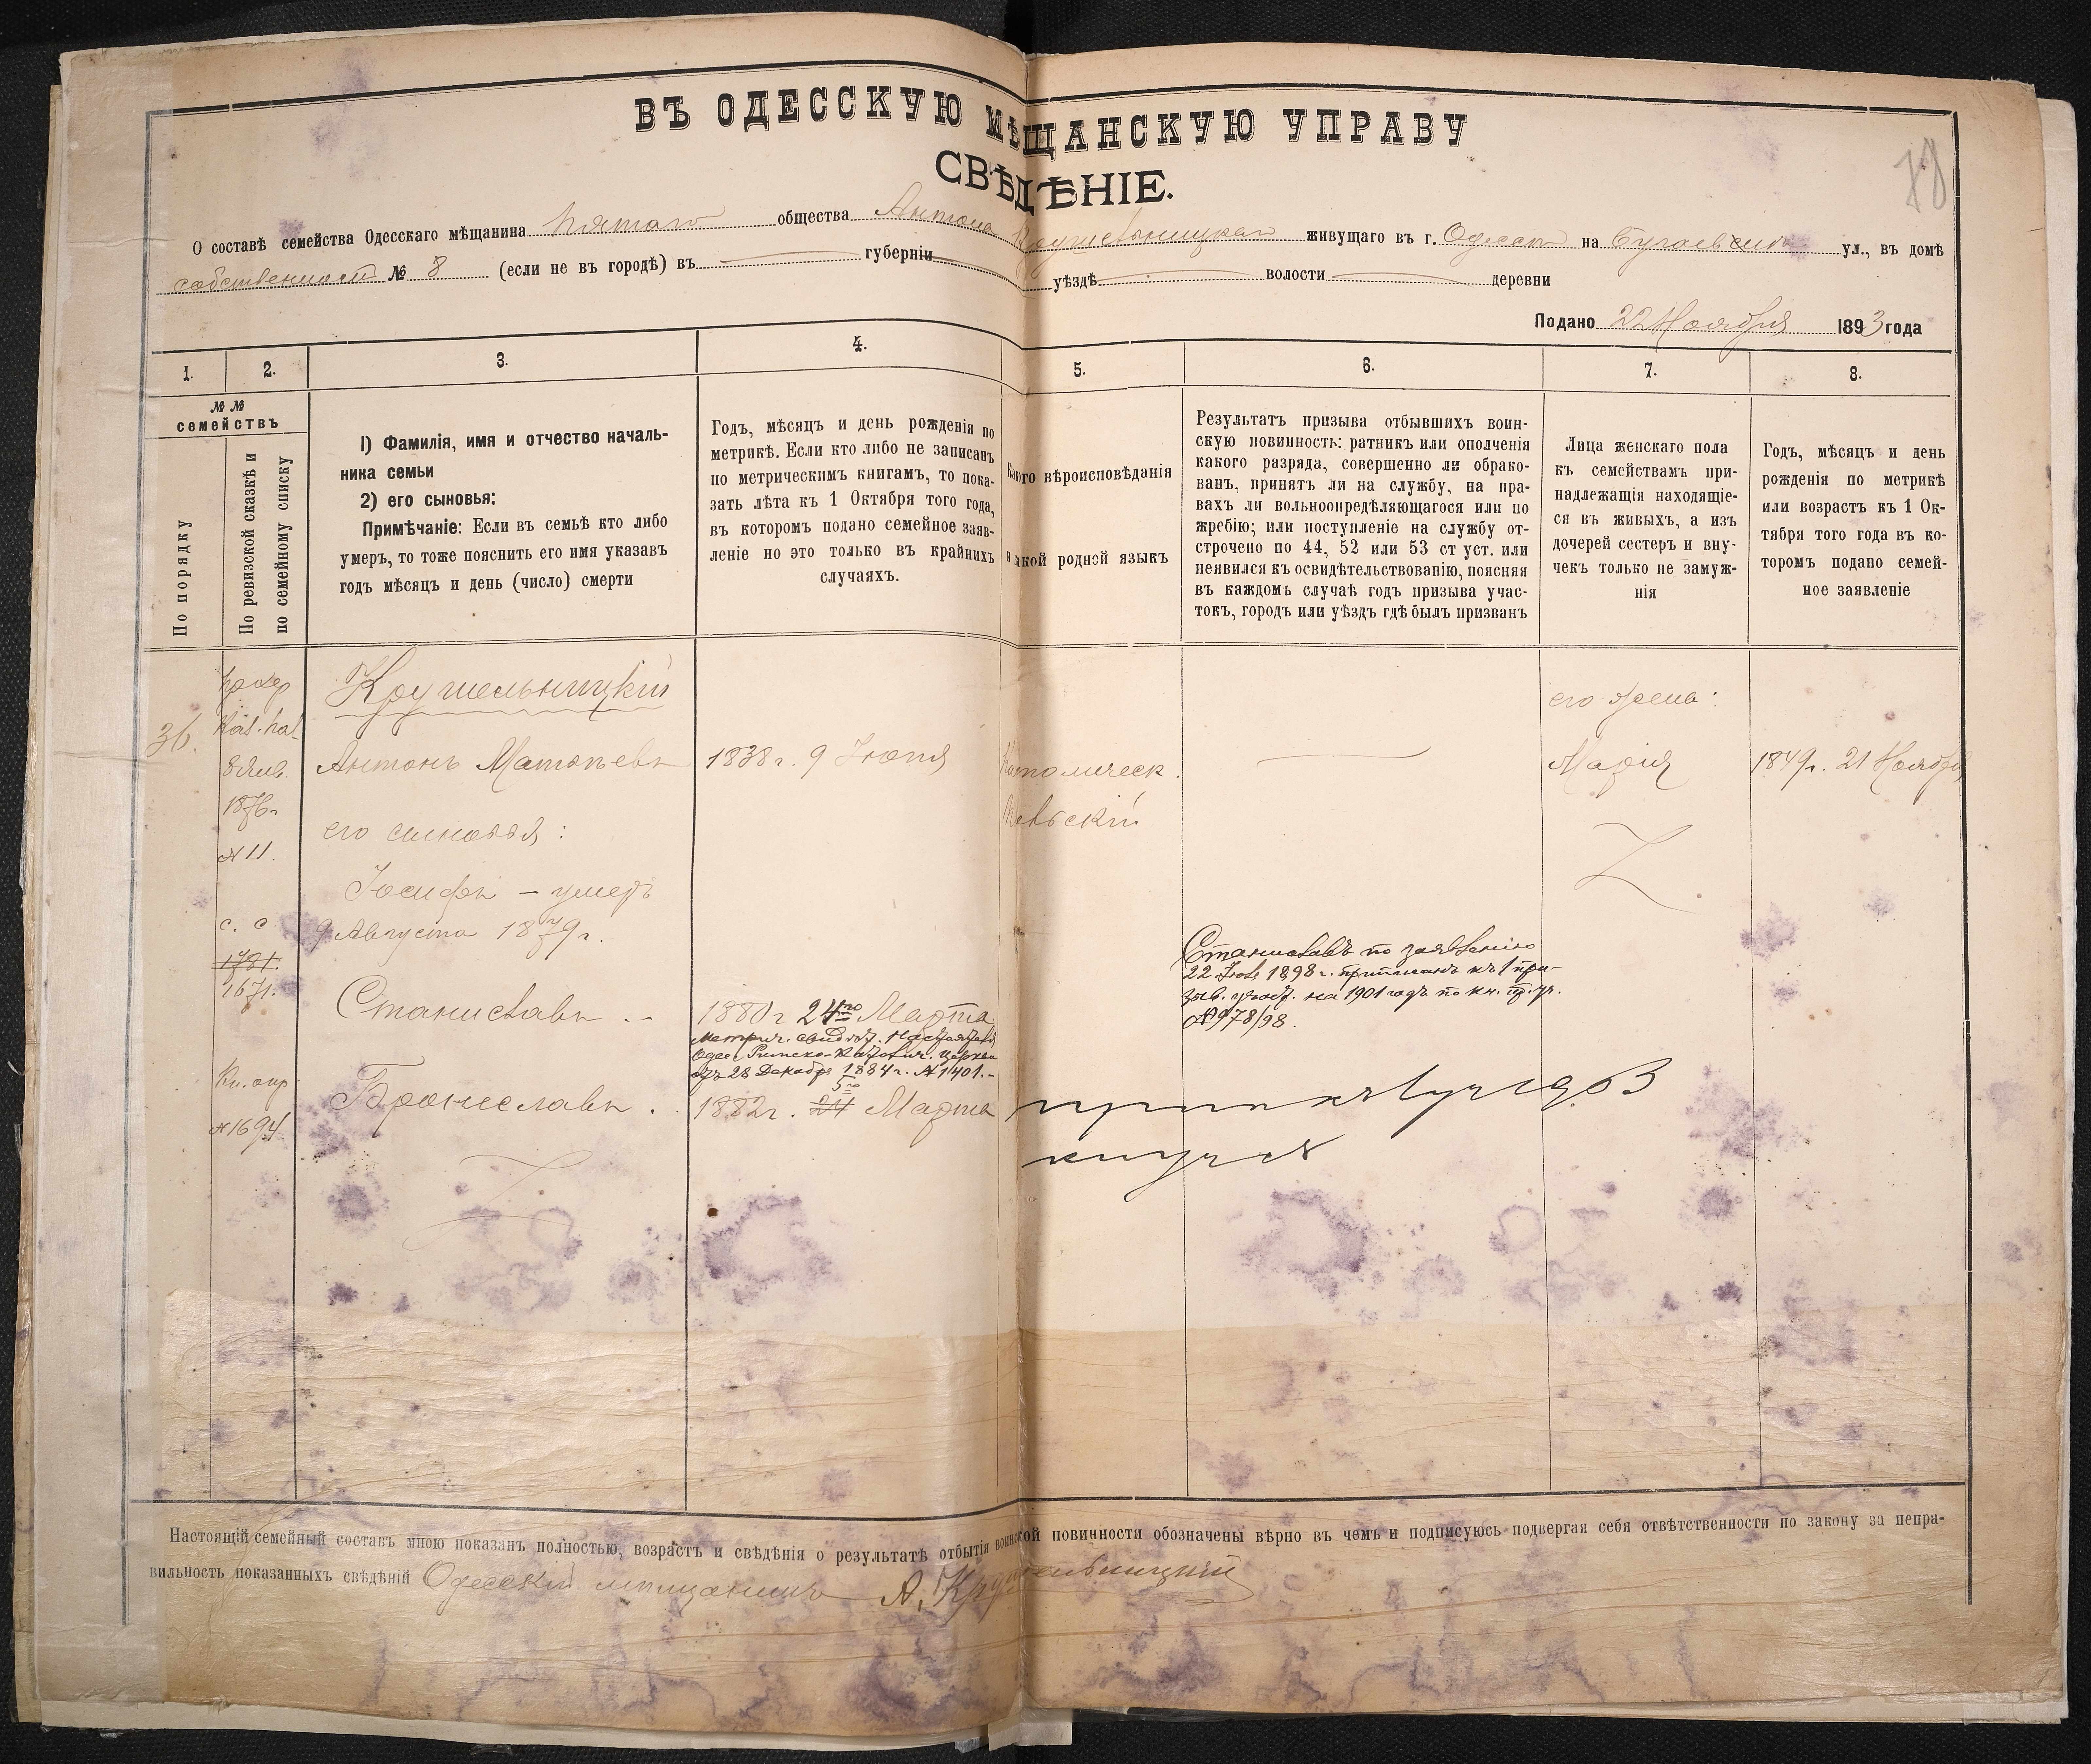 ВЪ ОДЕССКУЮ МѢЩАНСКУЮ УПРАВУ
СВѢДѢНІЕ.
78
О составѣ семейства Одесскаго мѣщанина пятаго общества Антона Крушельницкаго живущаго въ г. Одессѣ на Бугаевской ул., въ домѣ
собственномъ № 8 (если не въ городѣ) въ губерніи уѣздѣ волости деревни
Подано 22 Ноября 1893 года
1.
2.
3.
4.
5.
6.
7.
8.
№№
семействъ
По порядку
По ревизской сказкѣ и
по семейному списку
1) Фамилія, имя и отчество началь-
ника семьи
2) его сыновья:
Примѣчаніе: Если въ семьѣ кто либо
умеръ, то тоже пояснить его имя указавъ
годъ мѣсяцъ и день (число) смерти
Годъ, мѣсяцъ и день рожденія по
метрикѣ. Если кто либо не записанъ
по метрическимъ книгамъ, то пока-
зать лѣта къ 1 Октября того года,
въ которомъ подано семейное заяв-
леніе но это только въ крайнихъ
случаяхъ.
Какого вѣроисповѣданія
и какой родной языкъ
Результатъ призыва отбывшихъ воин-
скую повинность: ратникъ или ополченія
какого разряда, совершенно ли обрако-
ванъ, принятъ ли на службу, на пра-
вахъ ли вольноопредѣляющагося или по
жребію; или поступленіе на службу от-
строчено по 44, 52 или 53 ст уст. или
неявился къ освидѣтельствованію, поясняя
въ каждомъ случаѣ годъ призыва учас-
токъ, городъ или уѣздъ гдѣ былъ призванъ
Лица женскаго пола
къ семействамъ при-
надлежащія находящіе-
ся въ живыхъ, а изъ
дочерей сестеръ и вну-
чекъ только не замуж-
нія
Годъ, мѣсяцъ и день
рожденія по метрикѣ
или возрастъ къ 1 Ок-
тября того года въ ко-
торомъ подано семей-
ное заявленіе
36.
8 Янв.
1876 г
№ 11.
с. с
1781.
1671.
№ 1694
Крушельницкій
Антонъ Матѳѣевъ
его сыновья:
Іосифъ – умеръ
9 Августа 1879 г.
Станиславъ
Брониславъ
1838 г. 9 Іюня
1880 г 24го Марта
Метрич. свид. Настоятеля
Одес. Римско-Катол. церкви
отъ 28 Декабр 1884 г. № 1401.-
5го
1882 г. 24 Марта
Католическ.
Польскій
Станиславъ по заявленію
22 1898 г. приписанъ къ 1 при-
зыв. участ. на 1901 годъ по кн. пр. уч.
№ 978/98.
его жена:
Марія
1849 г. 21 Ноября
1903
Настоящій семейный составъ мною показанъ полностью, возрастъ и свѣдѣнія о результатѣ отбытія воинской повинности обозначены вѣрно въ чемъ и подписуюсь подвергая себя отвѣтственности по закону за непра-
вильность показанныхъ свѣдѣній Одесскій мѣщанинъ А. Крушельницкій